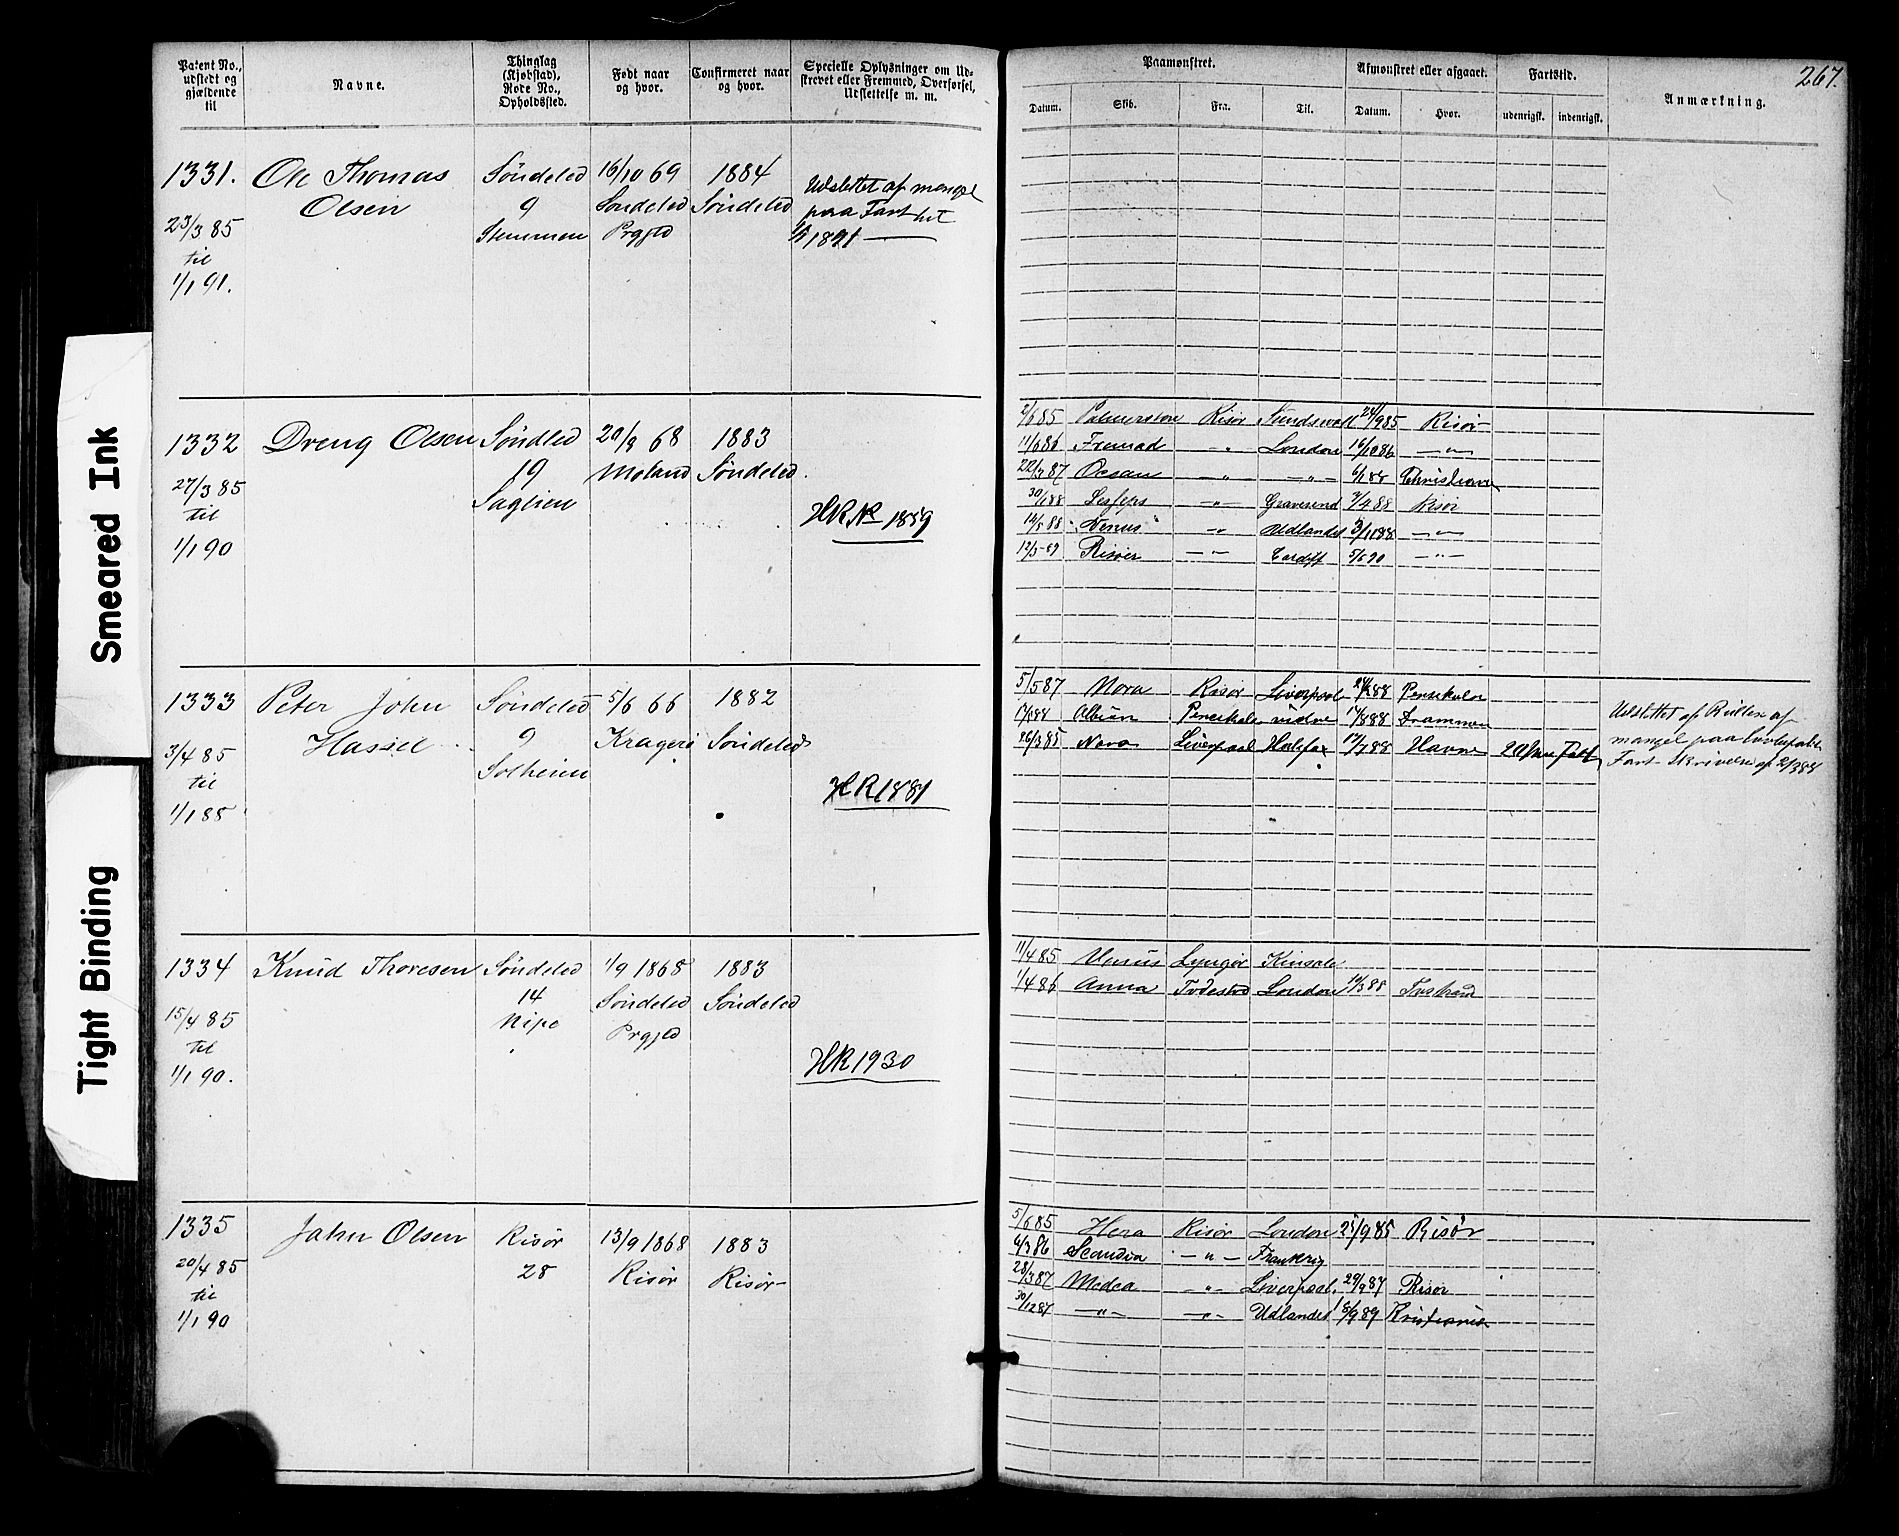 267.
Patent No., udstedt og gjældende til
Navne.
Thinglag (Kjøbstad), Rode No., Opholdssted.
Født naar og hvor.
Confirmeret naar og hvor.
Specielle Oplysninger om Udskrevet eller Fremmed, Overførsel, Udslettelse m. m.
Paamønstret.
Afmønstret eller afgaaet.
Fartstid.
Anmærkning.
Datum.
Skib.
Fra.
Til.
Datum.
Hvor.
udenrigsk.
indenrigsk.
1331. Ole Thomas Søndeled 16/10 69 1884 Udslettet af mangel
Olsen 9 Søndeled Søndeled paa Fart
23/3 85 Stemmen Prgjld 1/1 1891 —
til
1/1 91.
1332 Dreng Olsen Søndled 20/8 68 1883
19 Moland Søndeled.
27/3 85 Saglien
til HR No 1859
1/1 90
2/6 85 Palmerston Risør Sundsvall 24/9 85 Risør
11/6 86 Fremad — " London 16/10 86 — " —
22/3 87 Ocean — " — — " — 6/1 88 Christiania
30/1 88 Lesseps — " — Gravesend 3/4 88 Risør
14/5 88 "Venus" — " Udlandet 3/11 88 — " —
12/3 89 Risøer — " — Cardiff 5/6 90 — " —
1333 Peter John Søndeled 5/6 66 1882
Hassel 9 Kragerø Søndeled
3/4 85 Solheim
til HR 1881
1/1 88
5/5 87 Nora Risør Liverpool Pensikola
Albion Pensikola vidre 17/8 88 Drammen
26/3 85 Nora Liverpool Halifax 17/7 88 Havne
Udslettet af Rullen af
mangel paa lovbefalet
Fart Skrivelse af 2/3 88
1334 Knud Thoresen Søndeled 1/9 1868 1883
14 Søndeled Søndeled
15/4 85 Nipe Prgjld
til
1/1 90. HR 1930
11/4 85 Venus Lyngør Kinsale
1/4 86 Anna Tvedestrd London 14/3 88
1335 John Olsen Risør 13/9 1868 1883
20/4 85 28 Risør Risør
til
1/1 90
5/6 85 Hera Risør London 25/9 85 Risør
6/3 86 Scandia — " — Frankrig
28/3 87 Medea — " — Liverpool 29/9 87 Risør
30/12 87 — " — — " — Udlandet 18/9 89 Kristiania
Smeared Ink
Tight Binding